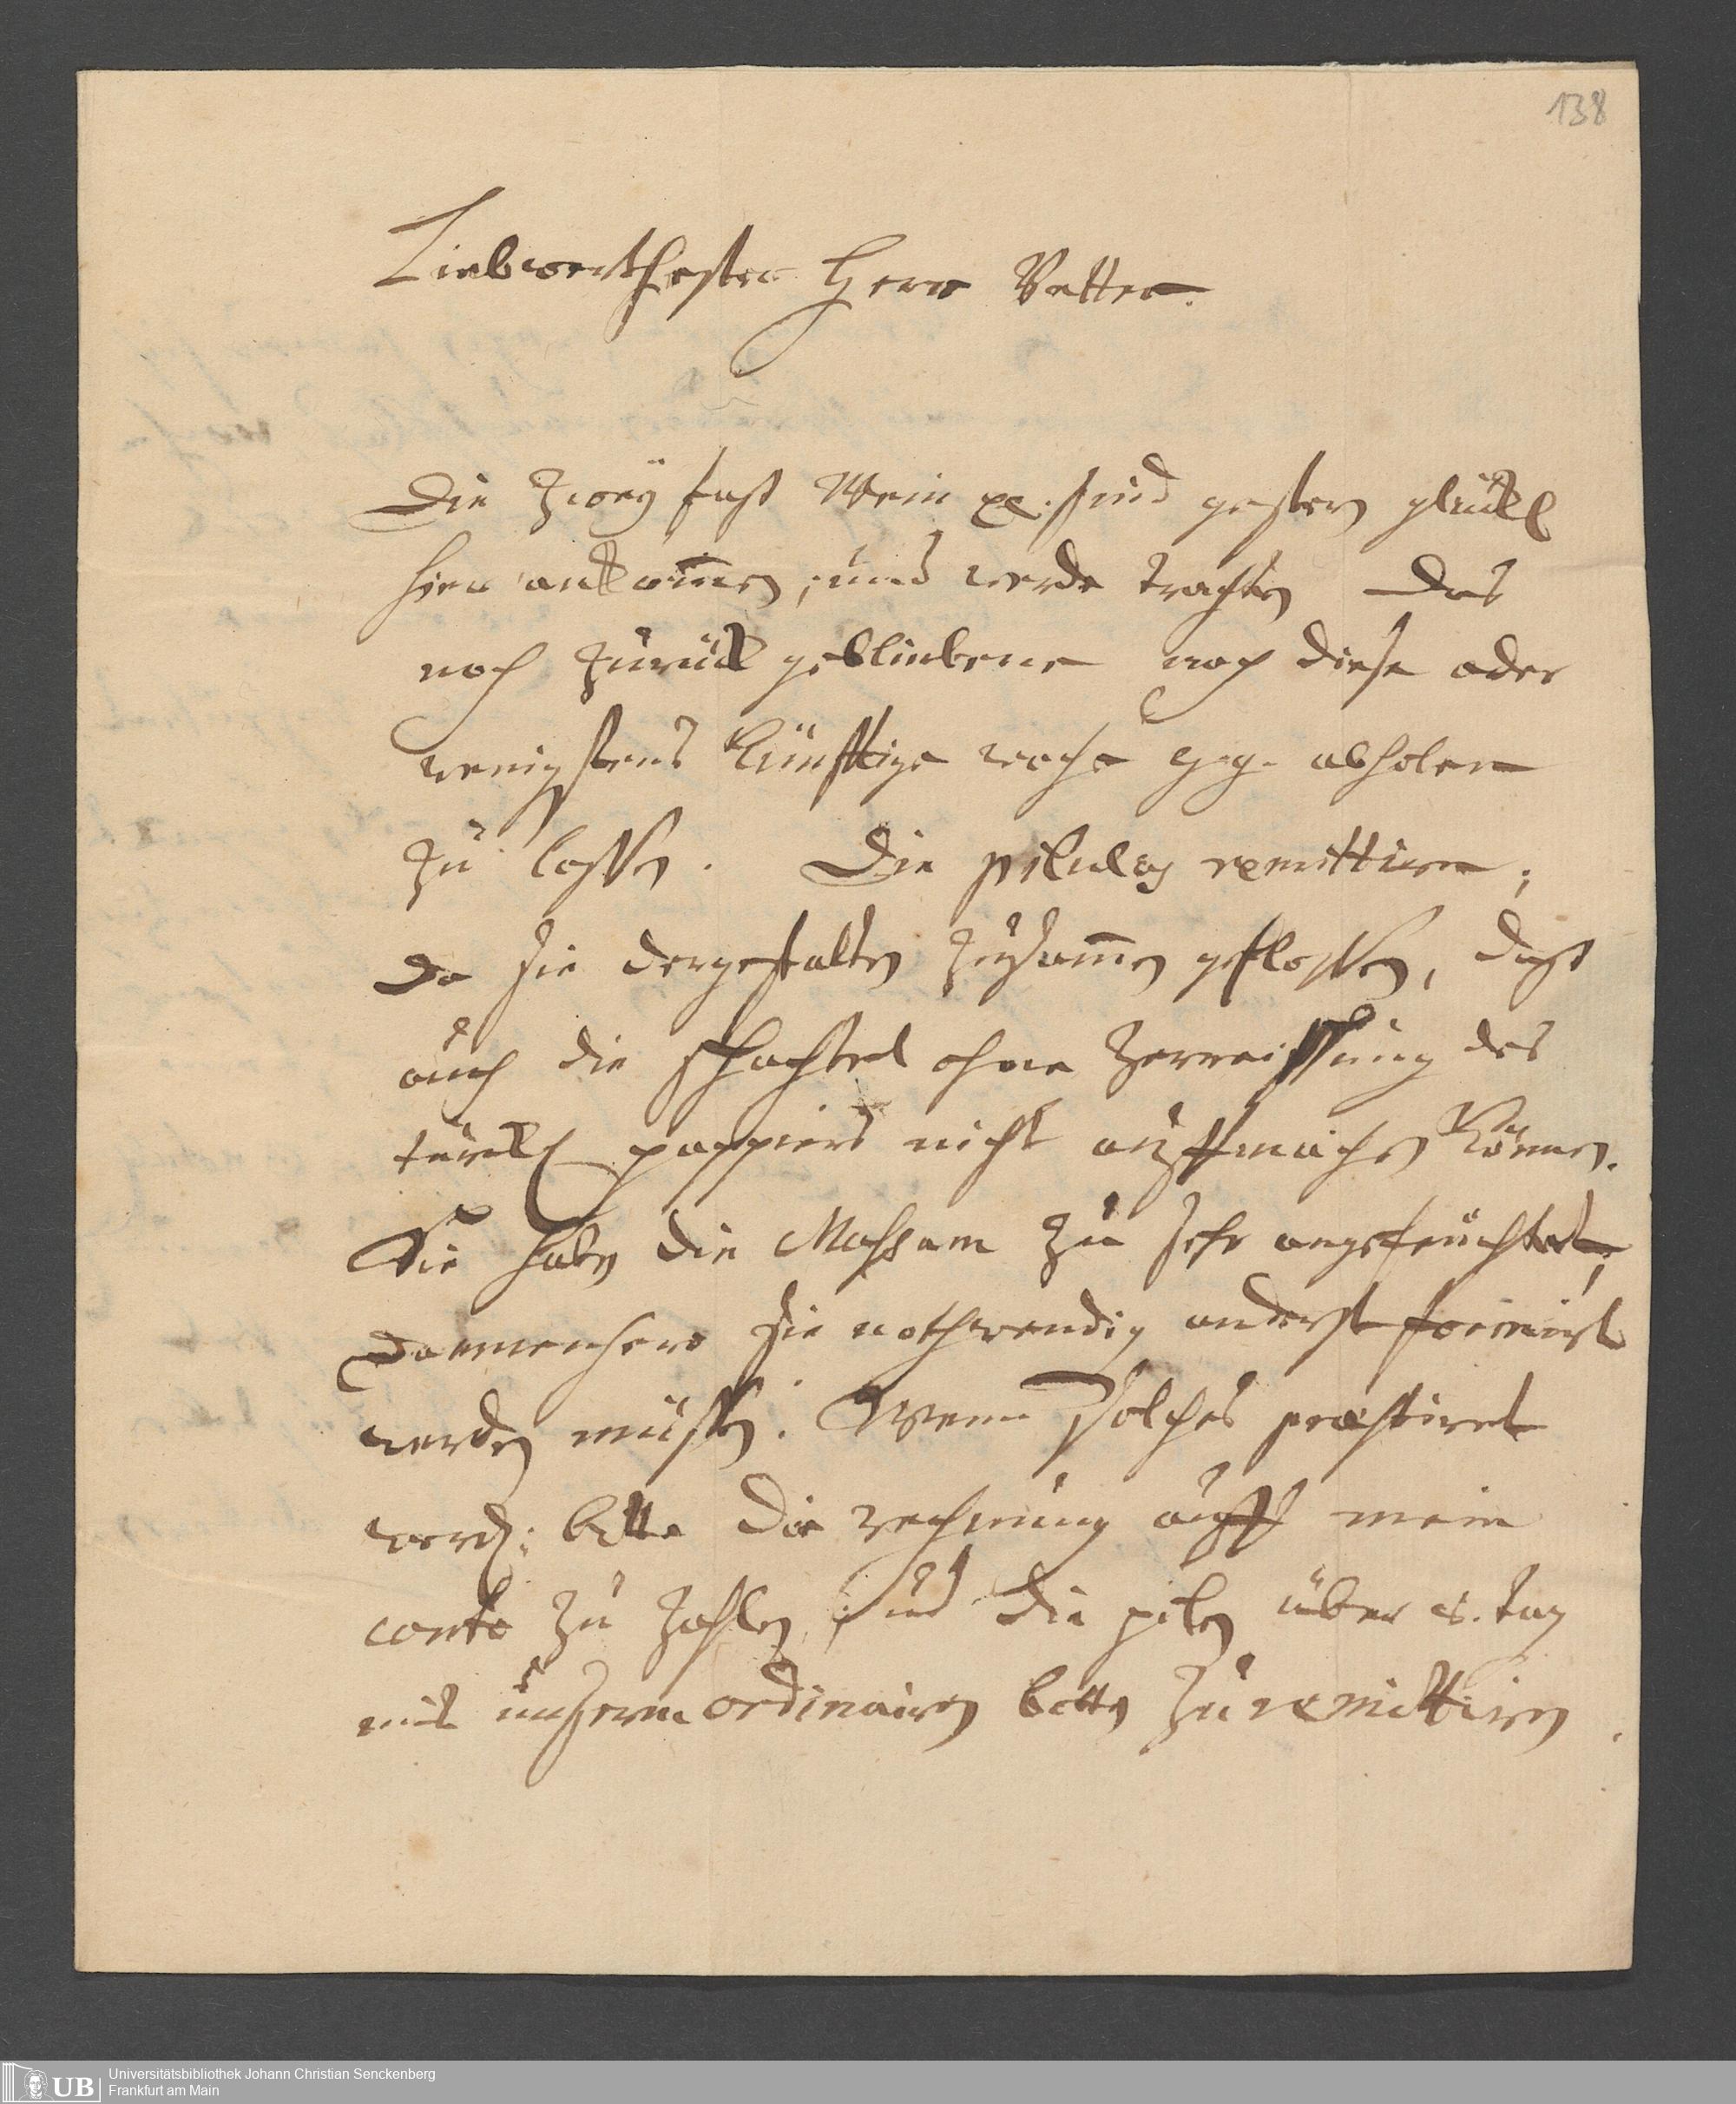 138
Liebwerthester Herr Vetter.
Die zwey fast Wein xx. sind gestern glückl
hier ankom̅en, und werde trachten das
noch zurück gebliebene noch diese oder
wenigstens künfftige woche abholen
zu lassen. Die pilulas remittire;
da sie dergestalten zusam̅en geflossen, dass
auch die schachtel ohne Zerreissung des
türckl pappiers nicht auffmachen können.
Sie haben die Massam zu sehr angefeuchtet;
dannenhero sie nothwendig anderst formirt
werden müssen. Wenn solches præstiret
word: bitte die rechnung auff mein
conto zu zahlen, und die pilen über 8. tag
mit unserm ordinairen botten zu remittiren.
Universitätsbibliothek Johann Christian Senckenberg
Frankfurt am Main
UB